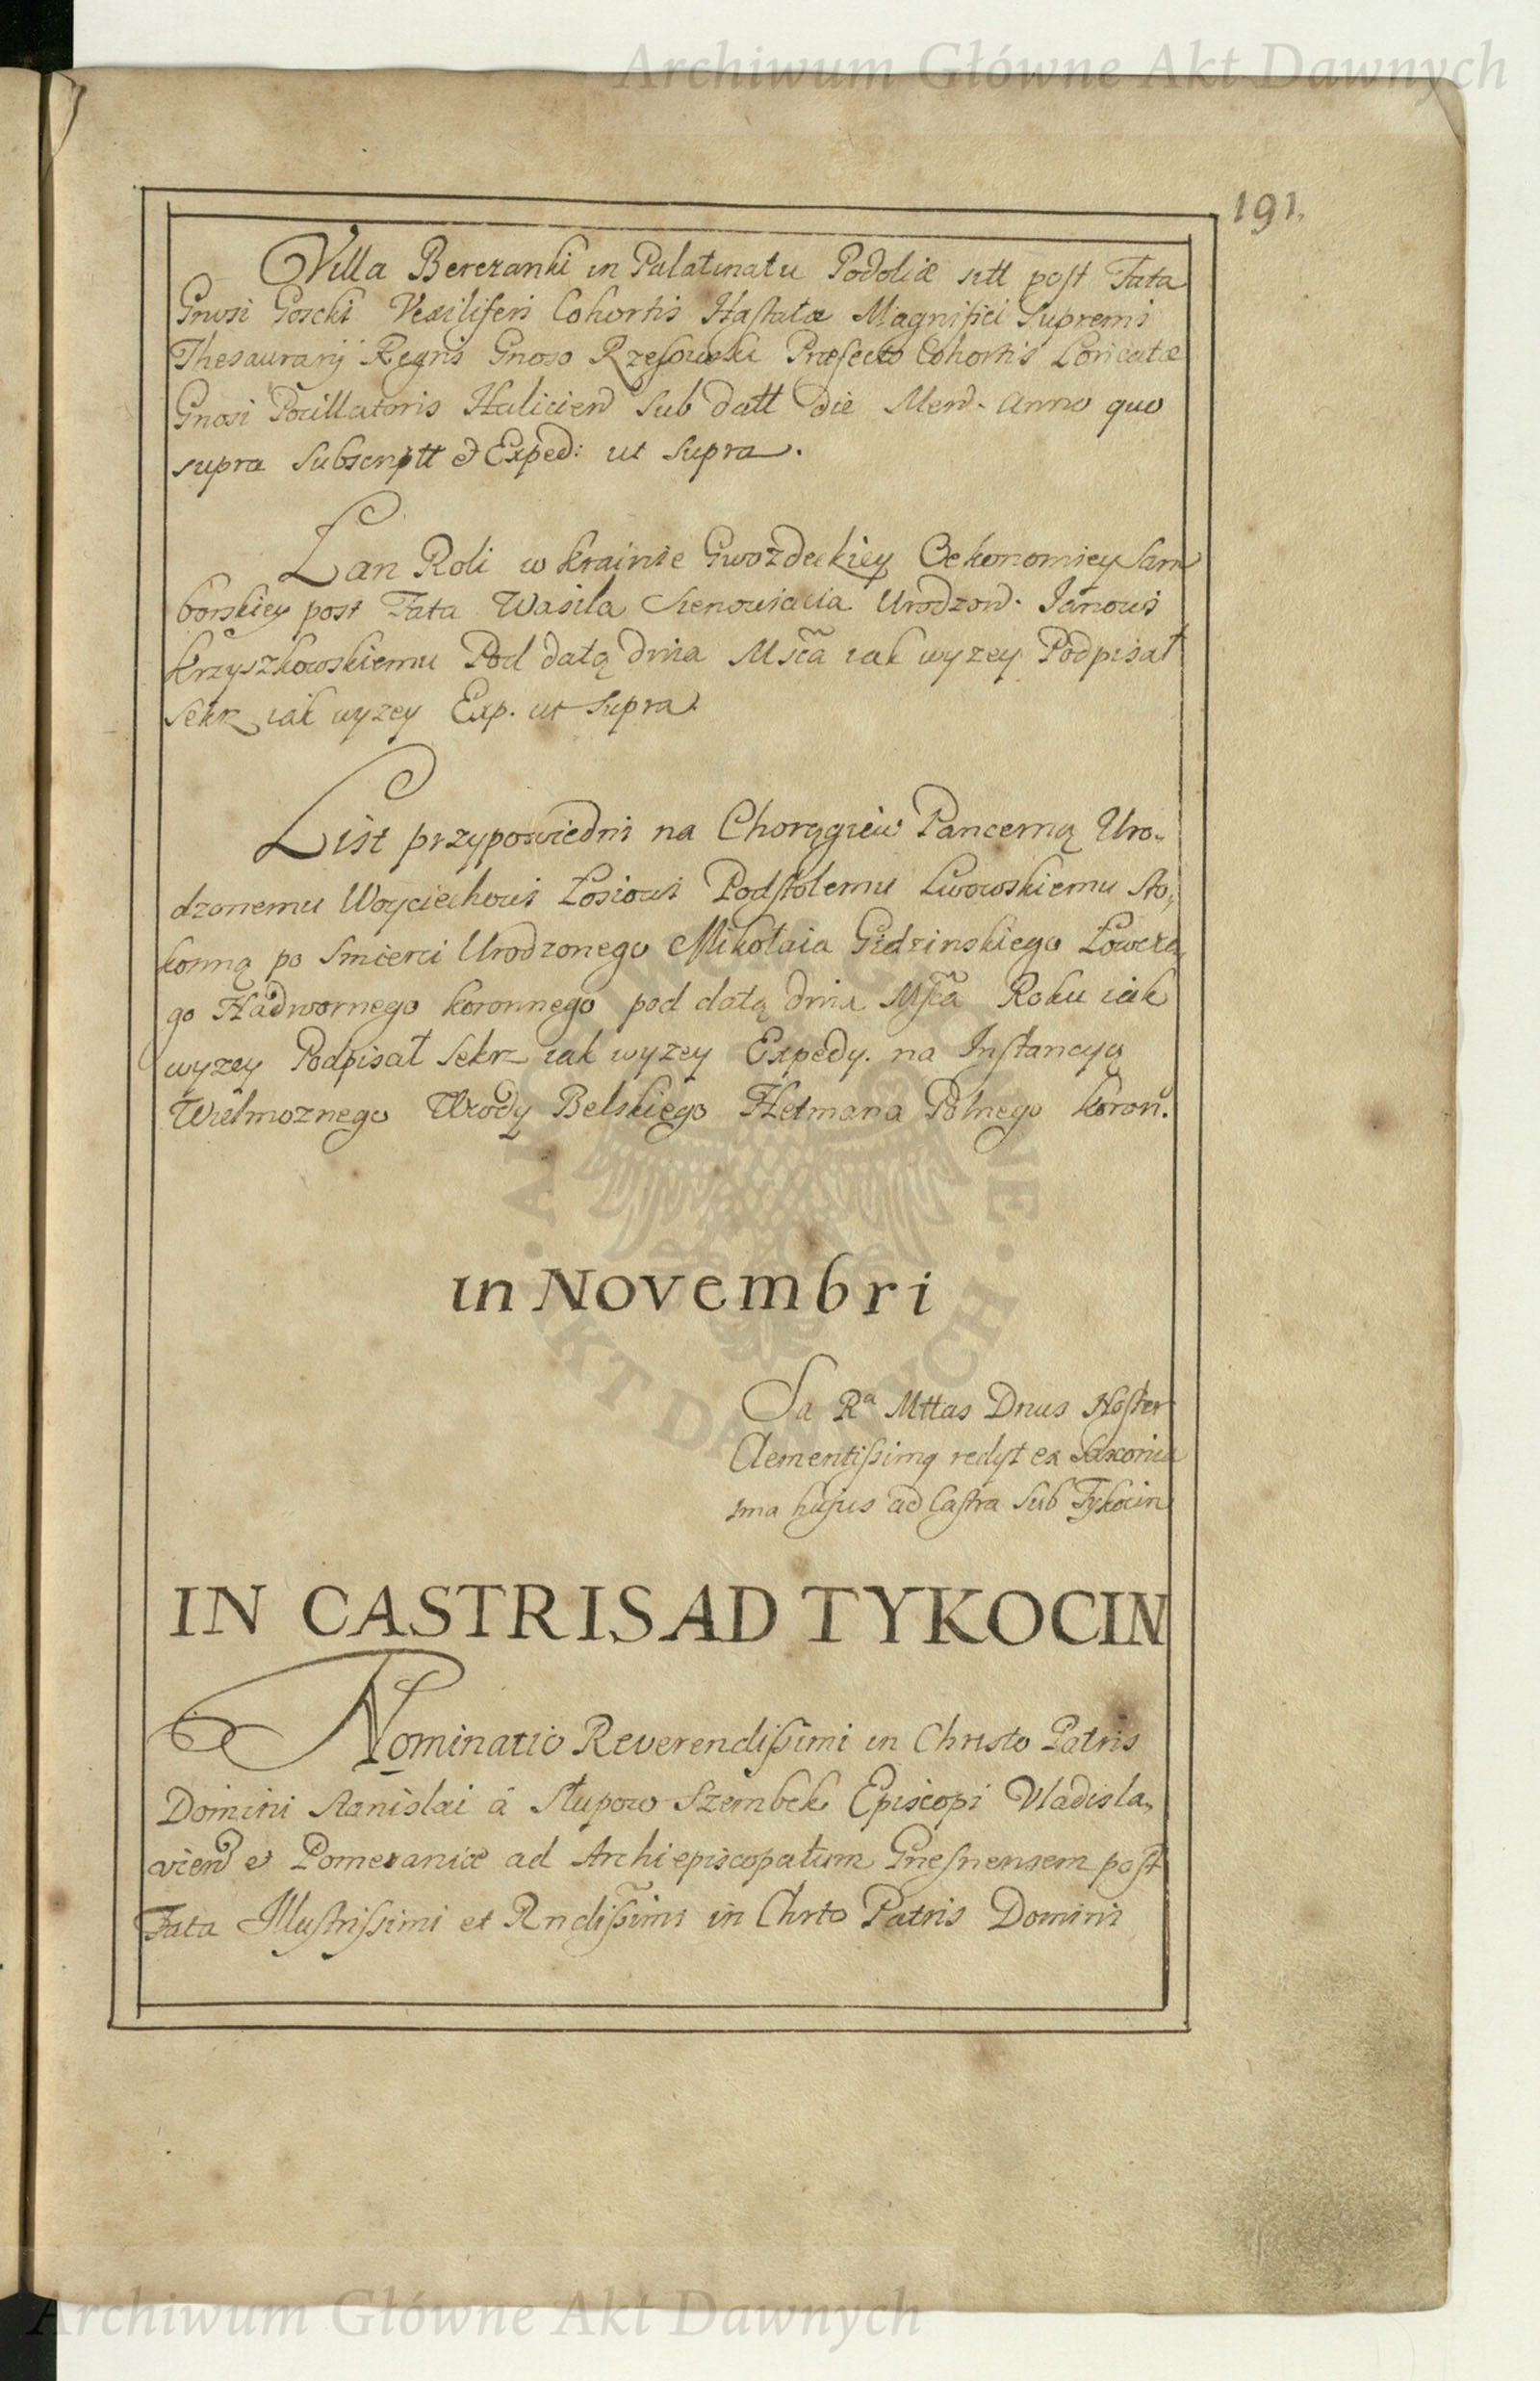 Archiwum Główne Akt Dawnych
191.
Villa Berezanki in Palatinatu Podoliæ sitt post Fata
Gnosi Goscki Vexiliferi Cohortis Hastatæ Magnifici Supremi
Thesaurarij Regni Gnoso Rzesowski Præfecto Cohortis Loricatæ
Gnosi Pocillatoris Halicien Sub datt die Men. Anno quo
supra Subscriptt & Exped: ut supra.
Łan Roli w krainie Gwozdeckiey Oekonomiey Sam
borskiey post Fata Wasila Urodzon. Janowi
Krzyszkowskiemu Pod datą dnia Msca iak wyzey Podpisał
Sekr iak wyzey Exp. ut supra.
List przypowiedni na Chorągiew Pancerną Uro-
dzonemu Woyciechowi Łosiowi Podstolemu Lwowskiemu sto,
konną po Smierci Urodzonego Mikołaia Gidzinskiego Łowcze,
go Nadwornego koronnego pod datą dnia Msca Roku iak
wyzey Podpisał Sekr iak wyzey Expedy. na Instancyą
Wielmoznego Wdy Belskiego Hetmana Polnego koron.
in Novembri
Sa Ra Mttas Dnus Noster
Clementissimq redyt ex Saxonia
ima hujus ad Castra Sub Tykocin
IN CASTRIS AD TYKOCIN
Nominatio Reverendissimi in Christo Patris
Domini Stanislai à Słupow Szembek Episcopi Vladisla,
vien et Pomeraniæ ad Archiepiscopatum Gnesnensem post
Fata Illustrissimi et Rndissimi in Chrto Patris Domini
A · IWUM GŁÓWNE · AKT DAWNYCH ·
Archiwum Główne Akt Dawnych